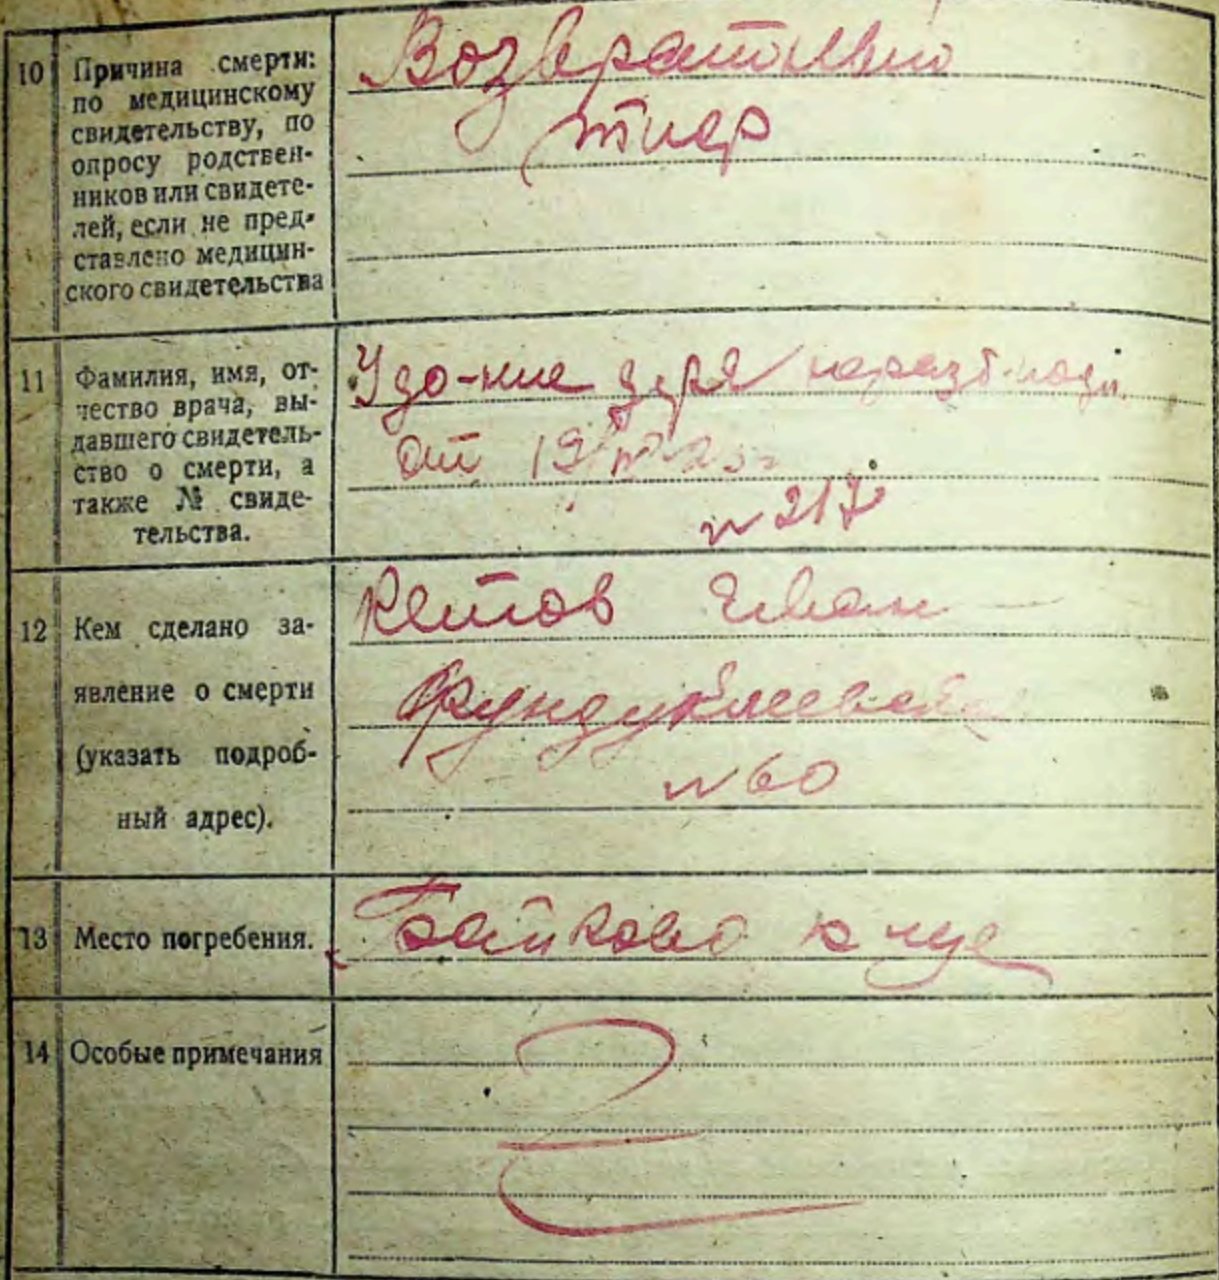 10 Причина смерти:
по медицинскому
свидетельству, по
опросу родствен-
ников или свидете-
лей, если не пред-
ставлено медицин-
ского свидетельства
Возвратный
тиф
11 Фамилия, имя, от-
чество врача, вы-
давшего свидетель-
ство о смерти, а
также № свиде-
тельства.
Удо-ние
от 19
№ 217
12 Кем сделано за-
явление о смерти
(указать подроб-
ный адрес).
Иван
Фундуклеевская
№ 60
13 Место погребения.
Байково к-ще
14 Особые примечания